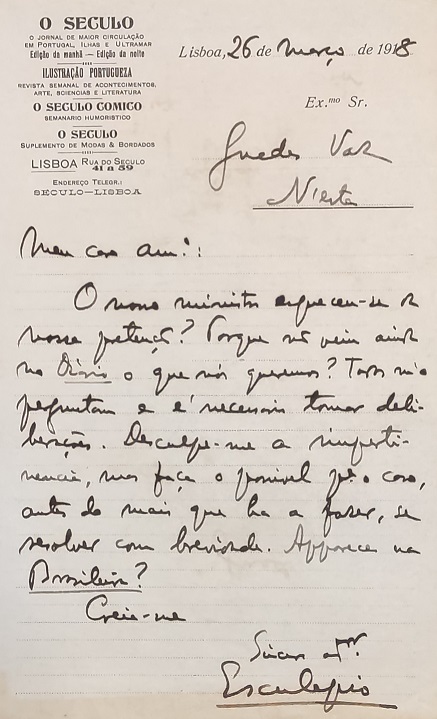 O SECULO
O JORNAL DE MAIOR CIRCULAÇÃO
EM PORTUGAL, ILHAS E ULTRAMAR
Edição da manhã — Edição da noite
ILUSTRAÇÃO PORTUGUEZA
REVISTA SEMANAL DE ACONTECIMENTOS,
ARTE, SCIENCIAS E LITERATURA
O SECULO COMICO
SEMANARIO HUMORISTICO
O SECULO
SUPLEMENTO DE MODAS & BORDADOS
LISBOA RUA DO SECULO 41 a 59
ENDEREÇO TELEGR.:
SECULO—LISBOA
Lisboa, 26 de Março de 1918
Ex.mo Sr.
Guedes Vaz
N'esta
Meu caro am.º:
O nosso ministro esqueceu-se da
nossa pretenção? Porque não veiu ainda
no Diario o que nós queremos? Todos m'o
perguntam e é necessario tomar deli-
berações. Desculpe-me a imperti-
nencia, mas faça o possivel p.ª o caso,
antes do mais que ha a fazer, se
resolver com brevidade. Apparece na
Brasileira?
Creia-me
Esculapio